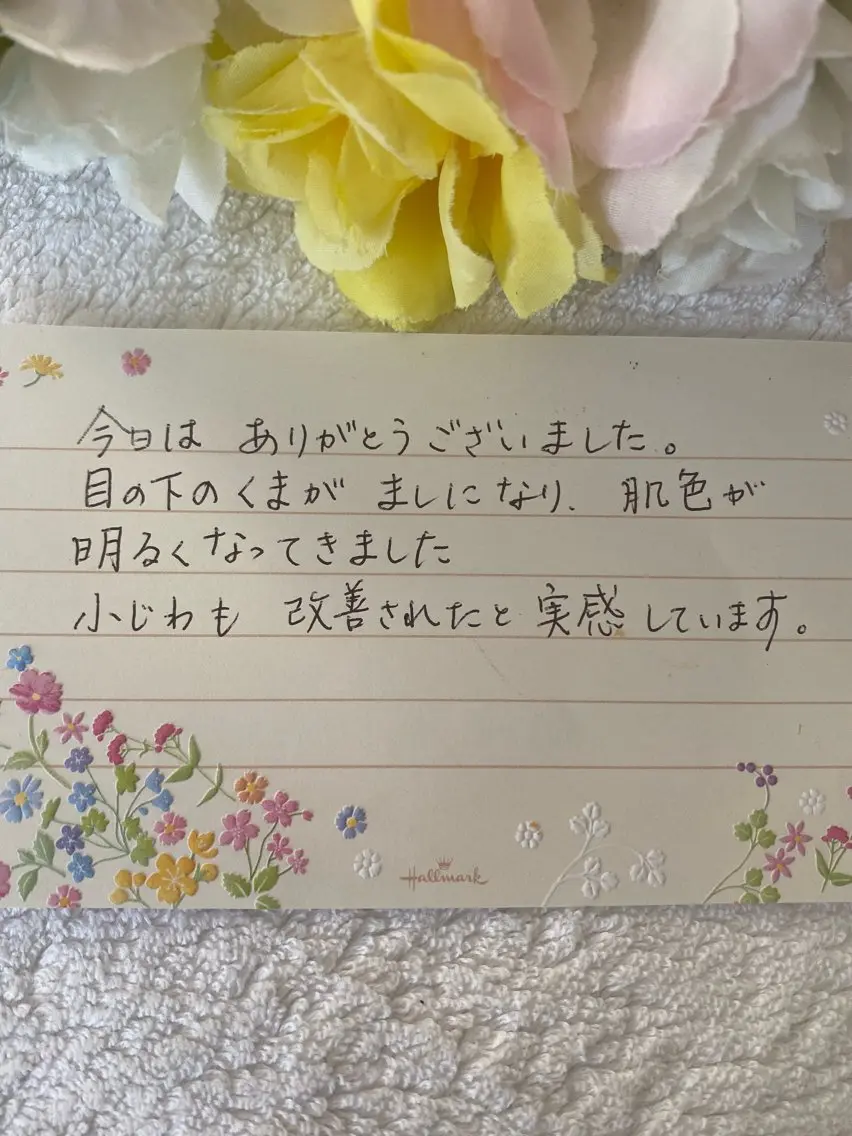 今日は ありがとうございました。
目の下のくまが ましになり、肌色が
明るくなってきました
小じわも 改善されたと実感しています。
Hallmark